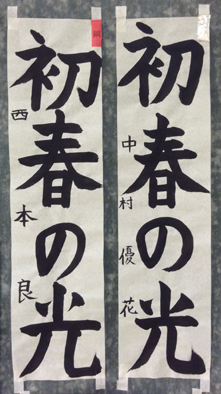 初春の光
中村優花
初春の光
西本良